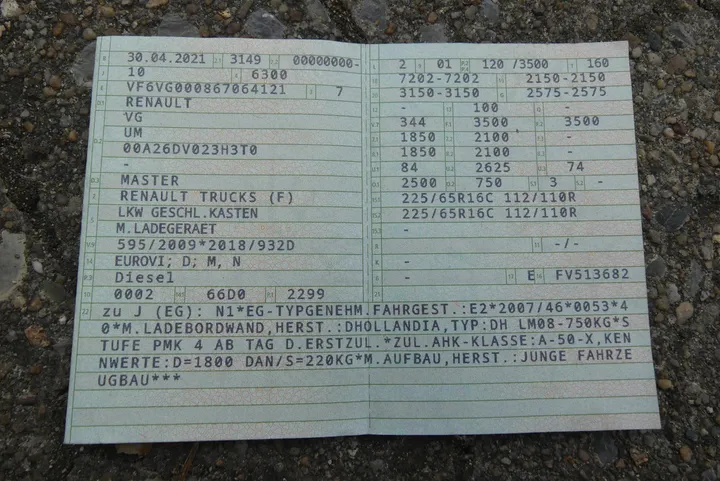 30.04.2021 3149 00000000-
10 6300
VF6VG000867064121 7
RENAULT
VG
UM
00A26DV023H3T0
-
MASTER
RENAULT TRUCKS (F)
LKW GESCHL.KASTEN
M.LADEGERAET
595/2009*2018/932D
EUROVI; D; M, N
Diesel
0002 66D0 2299
2 01 120 /3500 160
7202-7202 2150-2150
3150-3150 2575-2575
- 100 -
344 3500 3500
1850 2100 -
1850 2100 -
84 2625 74
2500 750 3 -
225/65R16C 112/110R
225/65R16C 112/110R
-
- -/-
-
- E FV513682
zu J (EG): N1*EG-TYPGENEHM.FAHRGEST.:E2*2007/46*0053*4
0*M.LADEBORDWAND,HERST.:DHOLLANDIA,TYP:DH LM08-750KG*S
TUFE PMK 4 AB TAG D.ERSTZUL.*ZUL.AHK-KLASSE:A-50-X,KEN
NWERTE:D=1800 DAN/S=220KG*M.AUFBAU,HERST.:JUNGE FAHRZE
UGBAU***